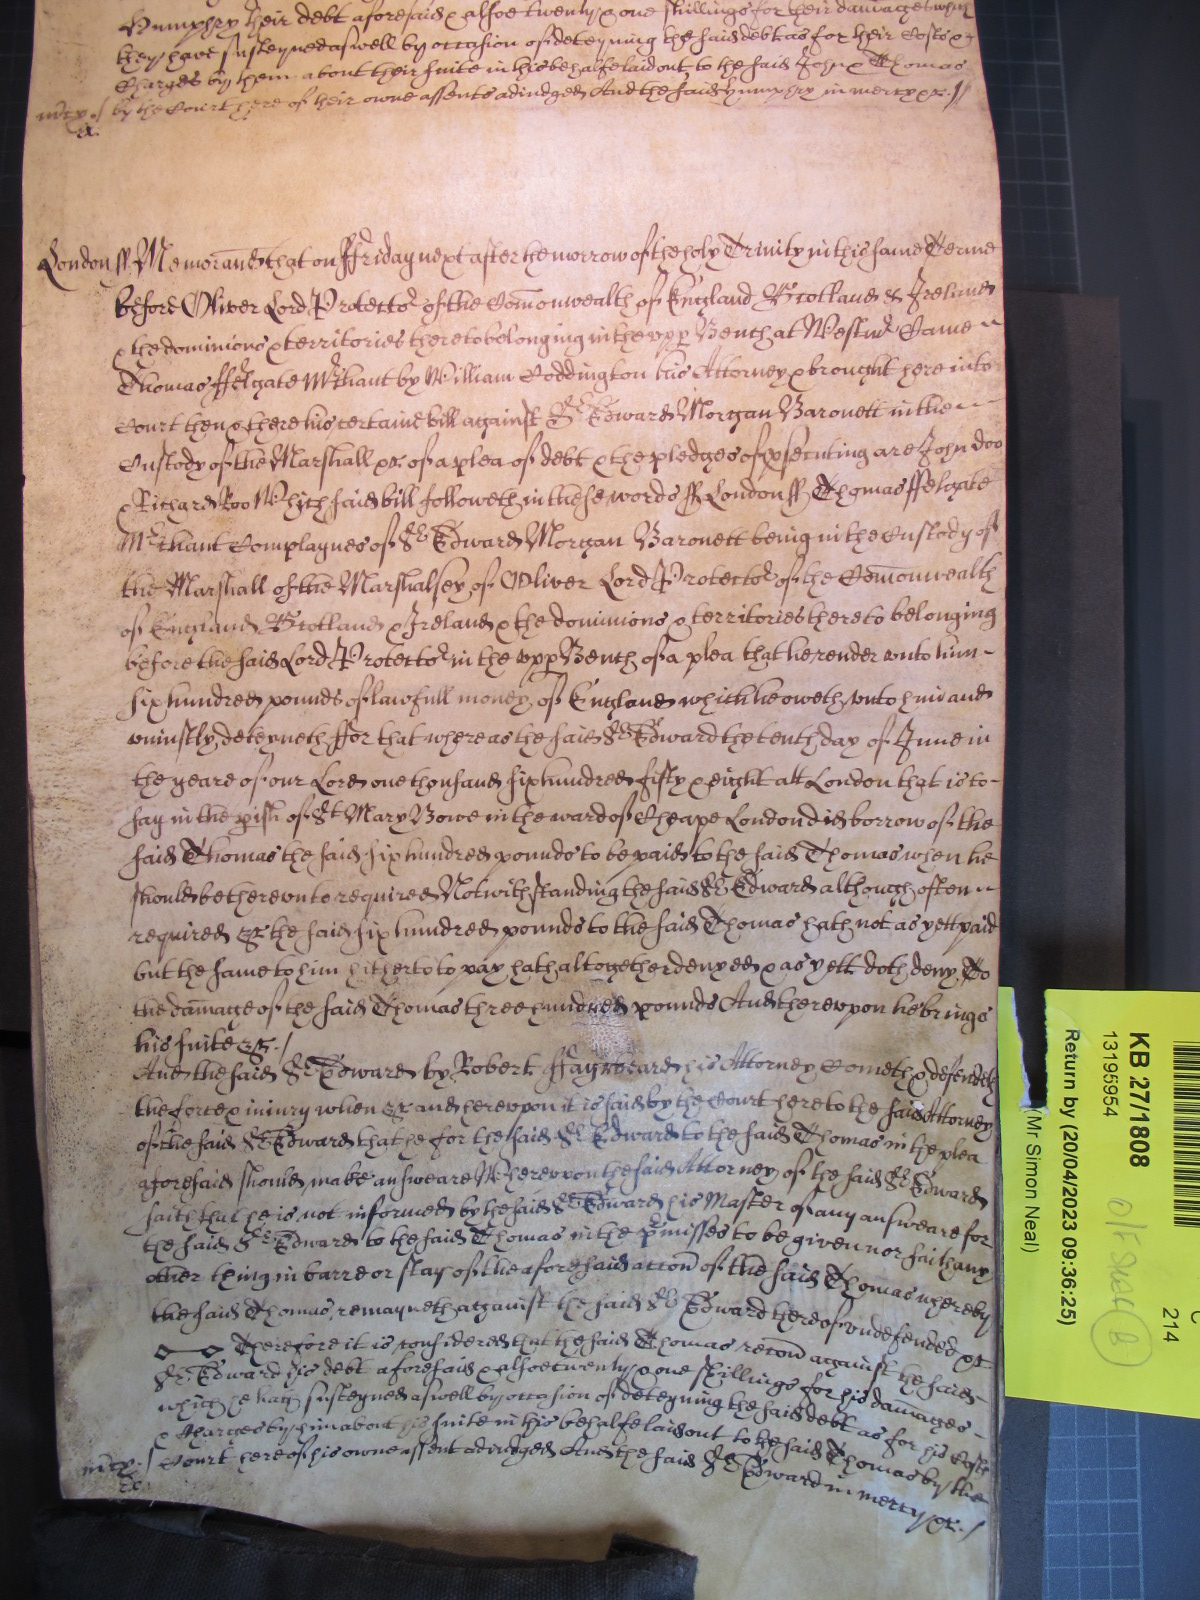 Humphry their debt aforesaid & alsoe twenty & one shillings for their damages which
they have susteyned aswell by occasion of deteyning the said debt as for their Costs &
Charges by them about their suite in his behalfe laid out to the said John & Thomas
by the Court here of their owne assents adiudged And the said Humphry in mercy &c.//
mcy./
&c.
London ss Memorand that on ffriday next after the morrow of the holy Trinity in this same Terme
before Oliver Lord Protector of the Comonwealth of England Scotland & Ireland
& the dominions & territories thereto belonging in the vpp Bench at Westmr Came
Thomas ffelgate Mrchant by William Coddington his Attorney & brought here into
Court then & there his certaine bill against Sr Edward Morgan Baronett in the
Custody of the Marshall &c. of a plea of debt & the pledges of psecuting are John Doo
& Richard Roo Which said bill followeth in these words ss London ss Thomas ffelgate
Mrchant Complaynes of Sr Edward Morgan Baronett being in the Custody of
the Marshall of the Marshalsey of Oliver Lord Protector of the Comonwealth
of England Scotland & Ireland & the dominions & territories thereto belonging
before the said Lord Protector in the vpp Bench of a plea that he render vnto him
six hundred pounds of lawfull money of England which he oweth vnto him and
vniustly deteyneth ffor that whereas the said Sr Edward the tenth day of June in
the yeare of our Lord one thousand six hundred fifty & eight att London that is to
say in the pish of St Mary Bowe in the ward of Cheape London did borrow of the
said Thomas the said six hundred pounds to be paid to the said Thomas when he
should be therevnto required Notwithstanding the said Sr Edward although often
required &c the said six hundred pounds to the said Thomas hath not as yett paid
but the same to him hitherto to pay hath altogether denyed & as yett doth deny To
the damage of the said Thomas three hundred pounds And therevpon he brings
his suite &c./
And the said Sr Edward by Robert ffayrbeard his Attorney Cometh & defendeth
the force & iniury when &c and herevpon it is said by the Court here to the said Attorney
of the said Sr Edward that he for the said Sr Edward to the said Thomas in the plea
aforesaid should make answeare Wherevpon the said Attorney of the said Sr Edward
saith that he is not informed by the said Sr Edward his Master of any answeare for
the said Sr Edward to the said Thomas in the pmisses to be given nor saith any
other thing in barre or stay of the aforesaid accon of the said Thomas whereby
the said Thomas remayneth against the said Sr Edward thereof vndefended &c
Therefore it is considered that the said Thomas recou against the said
Sr Edward his debt aforesaid & alsoe twenty & one shillings for his damages
which he hath susteyned aswell by occasion of deteyning the said debt as for his Costs
& Charges by him about his suite in his behalfe laid out to the said Thomas by the
Court here of his owne assent adiudged And the said Sr Edward in mercy &c./
mcy./
&c.
KB 27/1808
13195954
Return by (20/04/2023 09:36:25)
(Mr Simon Neal)
214